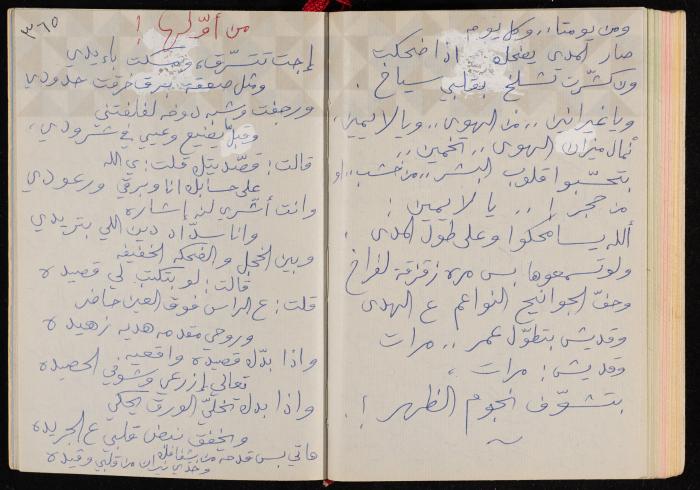 ٣٦٥
من أوّلها !
إجت تتسّرق، ومسكت بإيدي
ومثل صعقة برق خرقت حدودي
ورجفت وشبه دوخه لفلفتني
وقبل بضيع وعيي في شرودي،
قالت: قصّد بتل قلت: ي الله
على حسابك انا وبرقي ورعودي
وانت أشري لنه إشاره
وانا سدّاد دين اللي بتريدي
وبين الخجل والضحكه الخفيفه
قالت: لو بتكتب لي قصيده
قلت: ع الراس فوق العين حاضر
وروحي مقدمه هديه زهيده
واذا بدّك قصيده واقعيه
تعالي إزرعي وشوفي الحصيده
واذا بدك تخلّي الورق يحكي
ويخفق نبض قلبي ع الجريده
هاتي بس قدحه من شفافك
وخذي نيران من قلبي وقيده
ومن يومتا.. وكل يوم
صار المدى يضحك اذا ضحكت
ولا كشّرت تشلخ بقلبي سياخ.
ويا غيرانين.. من الهوى.. ويا لايمين،
نمال ميزان الهوى.. تخمين..
بتحسّبوا قلوب البشر.. من خشب.. او
من حجر!.. يا لايمين:
الله يسامحكوا وعلى طول المدى.
ولو تسمعوها بس مره زقزقة لفراخ
وحفّ الجوانيح النواعم ع الهدى
وقديش بتطوّل عمر.. مرات
وقديش: مرات،
بتشوّف نجوم الظهر!.